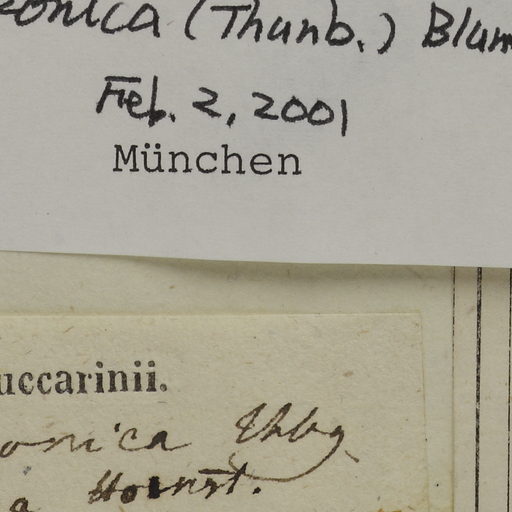 onica (Thunb.) Blum
Feb. 2, 2001
München
uccarinii.
onica Thbg
a